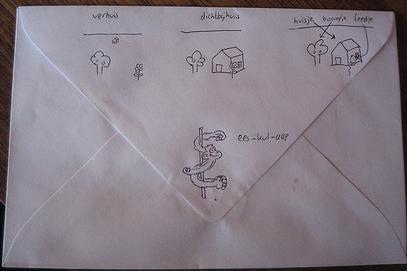 verhuis
dichtbijhuis
huisje boomtje feestje
ees-kul-aap